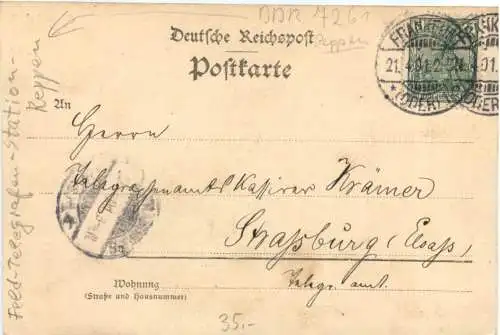 DDR 7261
Reppen
Deutsche Reichspost
Postkarte
FRANKFURT
21.4.01.2
(ODER)
An
Herrn
Telegraphenamts Kassirer Krämer
Straßburg (Elsaß)
Telegr. amt.
Wohnung
(Straße und Hausnummer)
35.-
Feld-Telegrafen-Station-
Reppen